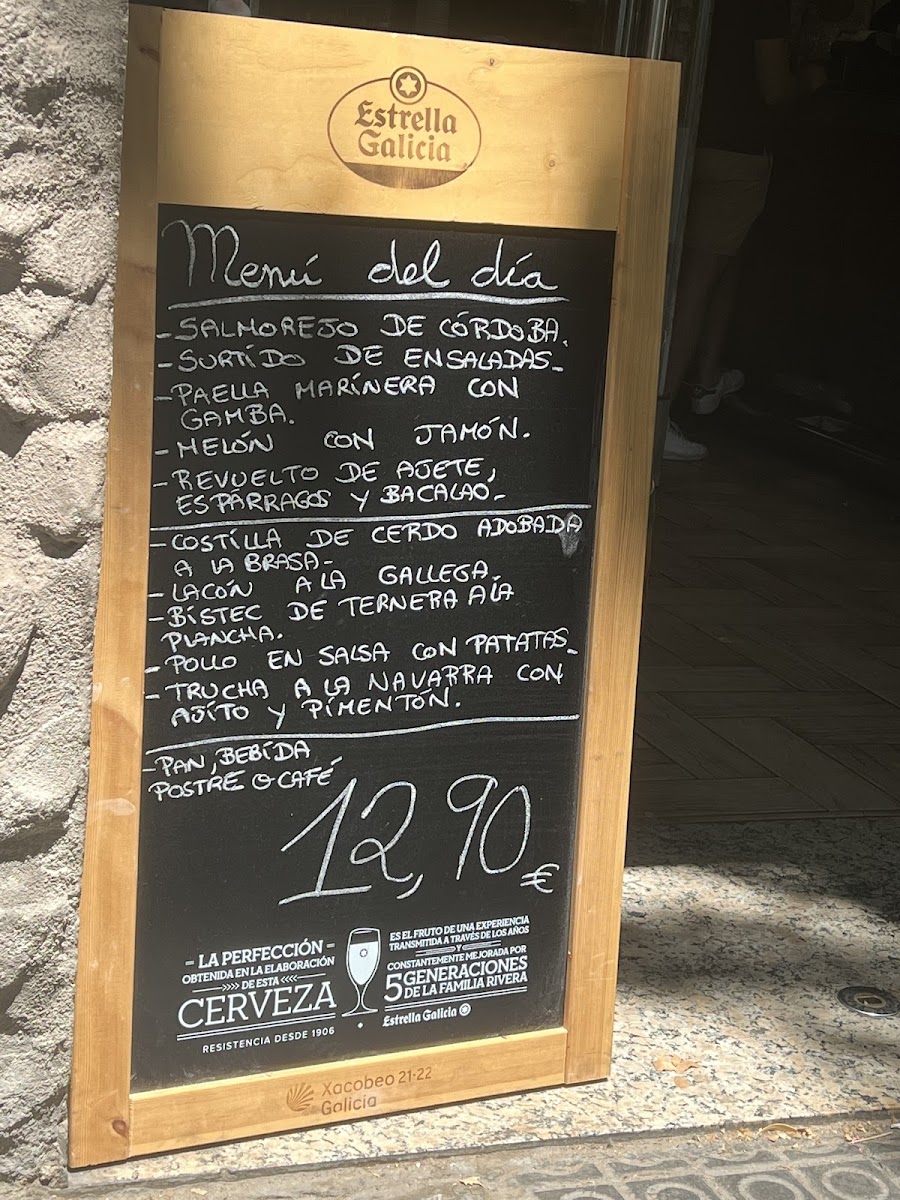 Estrella
Galicia
Menú del día
-SALMOREJO DE CÓRDOBA.
-SURTIDO DE ENSALADAS-
-PAELLA MARINERA CON
GAMBA.
-MELÓN CON JAMÓN.
-REVUELTO DE AJETE,
ESPÁRRAGOS Y BACALAO-
-COSTILLA DE CERDO ADOBADA
A LA BRASA-
-LACÓN A LA GALLEGA.
-BISTEC DE TERNERA A LA
PLANCHA.
-POLLO EN SALSA CON PATATAS-
-TRUCHA A LA NAVARRA CON
AJITO Y PIMENTÓN.
-PAN, BEBIDA
POSTRE O CAFÉ
12,90 €
- LA PERFECCIÓN -
OBTENIDA EN LA ELABORACIÓN
>>>> DE ESTA <<<<
CERVEZA
RESISTENCIA DESDE 1906
ES EL FRUTO DE UNA EXPERIENCIA
TRANSMITIDA A TRAVÉS DE LOS AÑOS
Y
CONSTANTEMENTE MEJORADA POR
5 GENERACIONES
DE LA FAMILIA RIVERA
Estrella Galicia
Xacobeo 21·22
Galicia